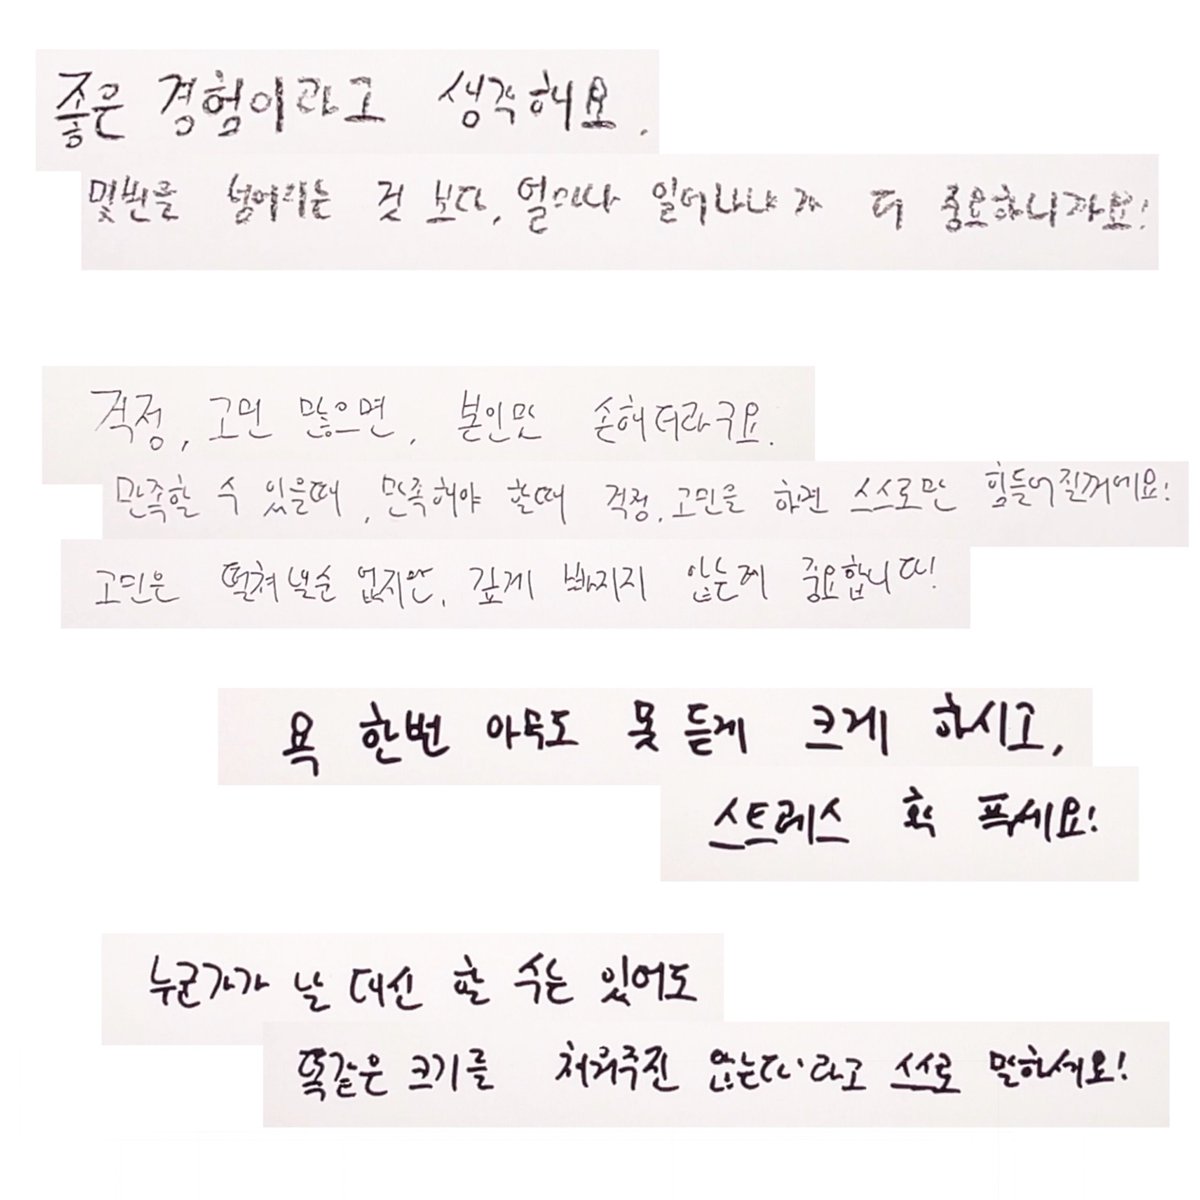 좋은 경험이라고 생각해요.
몇번를 넘어지는 것 보다, 얼마나 일어나냐가 더 중요하니까요!
걱정, 고민 많으면, 본인만 손해더라구요.
만족할 수 있을때, 만족해야 할때 걱정, 고민을 하면 스스로만 힘들어질꺼에요!
고민은 떨쳐낼순 없지만, 깊게 빠지지 않는게 중요합니다!
욕 한번 아무도 못 듣게 크게 하시고,
스트레스 확 푸세요!
누군가가 날 대신 할 수는 있어도
똑같은 크기를 처주진 않는다·라고 스스로 말하세요!